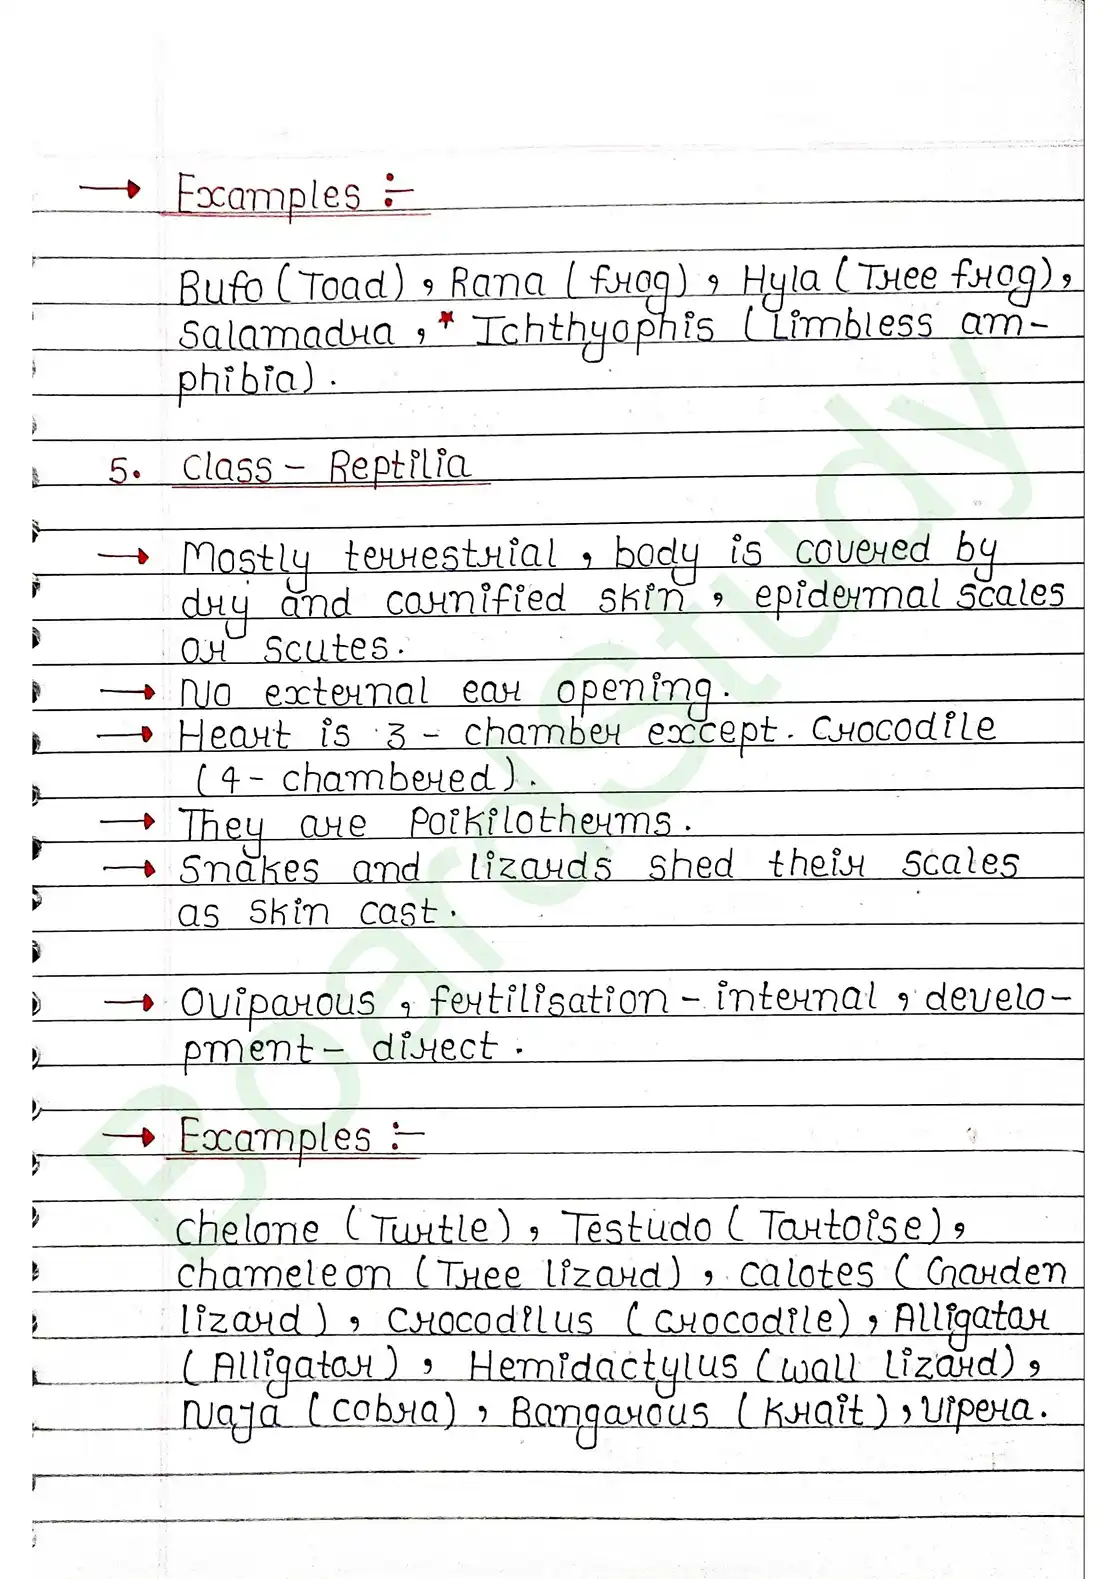 → Examples :-
Bufo (Toad), Rana (frog), Hyla (Tree frog),
Salamadra, * Ichthyophis (Limbless am-
phibia).
5. Class - Reptilia
→ Mostly terrestrial, body is covered by
dry and cornified skin, epidermal scales
or scutes.
→ No external ear opening.
→ Heart is 3 - chamber except. Crocodile
(4 - chambered).
→ They are Poikilotherms.
→ Snakes and lizards shed their scales
as skin cast.
→ Oviparous, fertilisation - internal, develo-
pment - direct.
→ Examples :-
Chelone (Turtle), Testudo (Tortoise),
Chameleon (Tree lizard), Calotes (Garden
lizard), Crocodilus (Crocodile), Alligator
(Alligator), Hemidactylus (Wall Lizard),
Naja (Cobra), Bangarous (Krait), Vipera.
BoardStudy